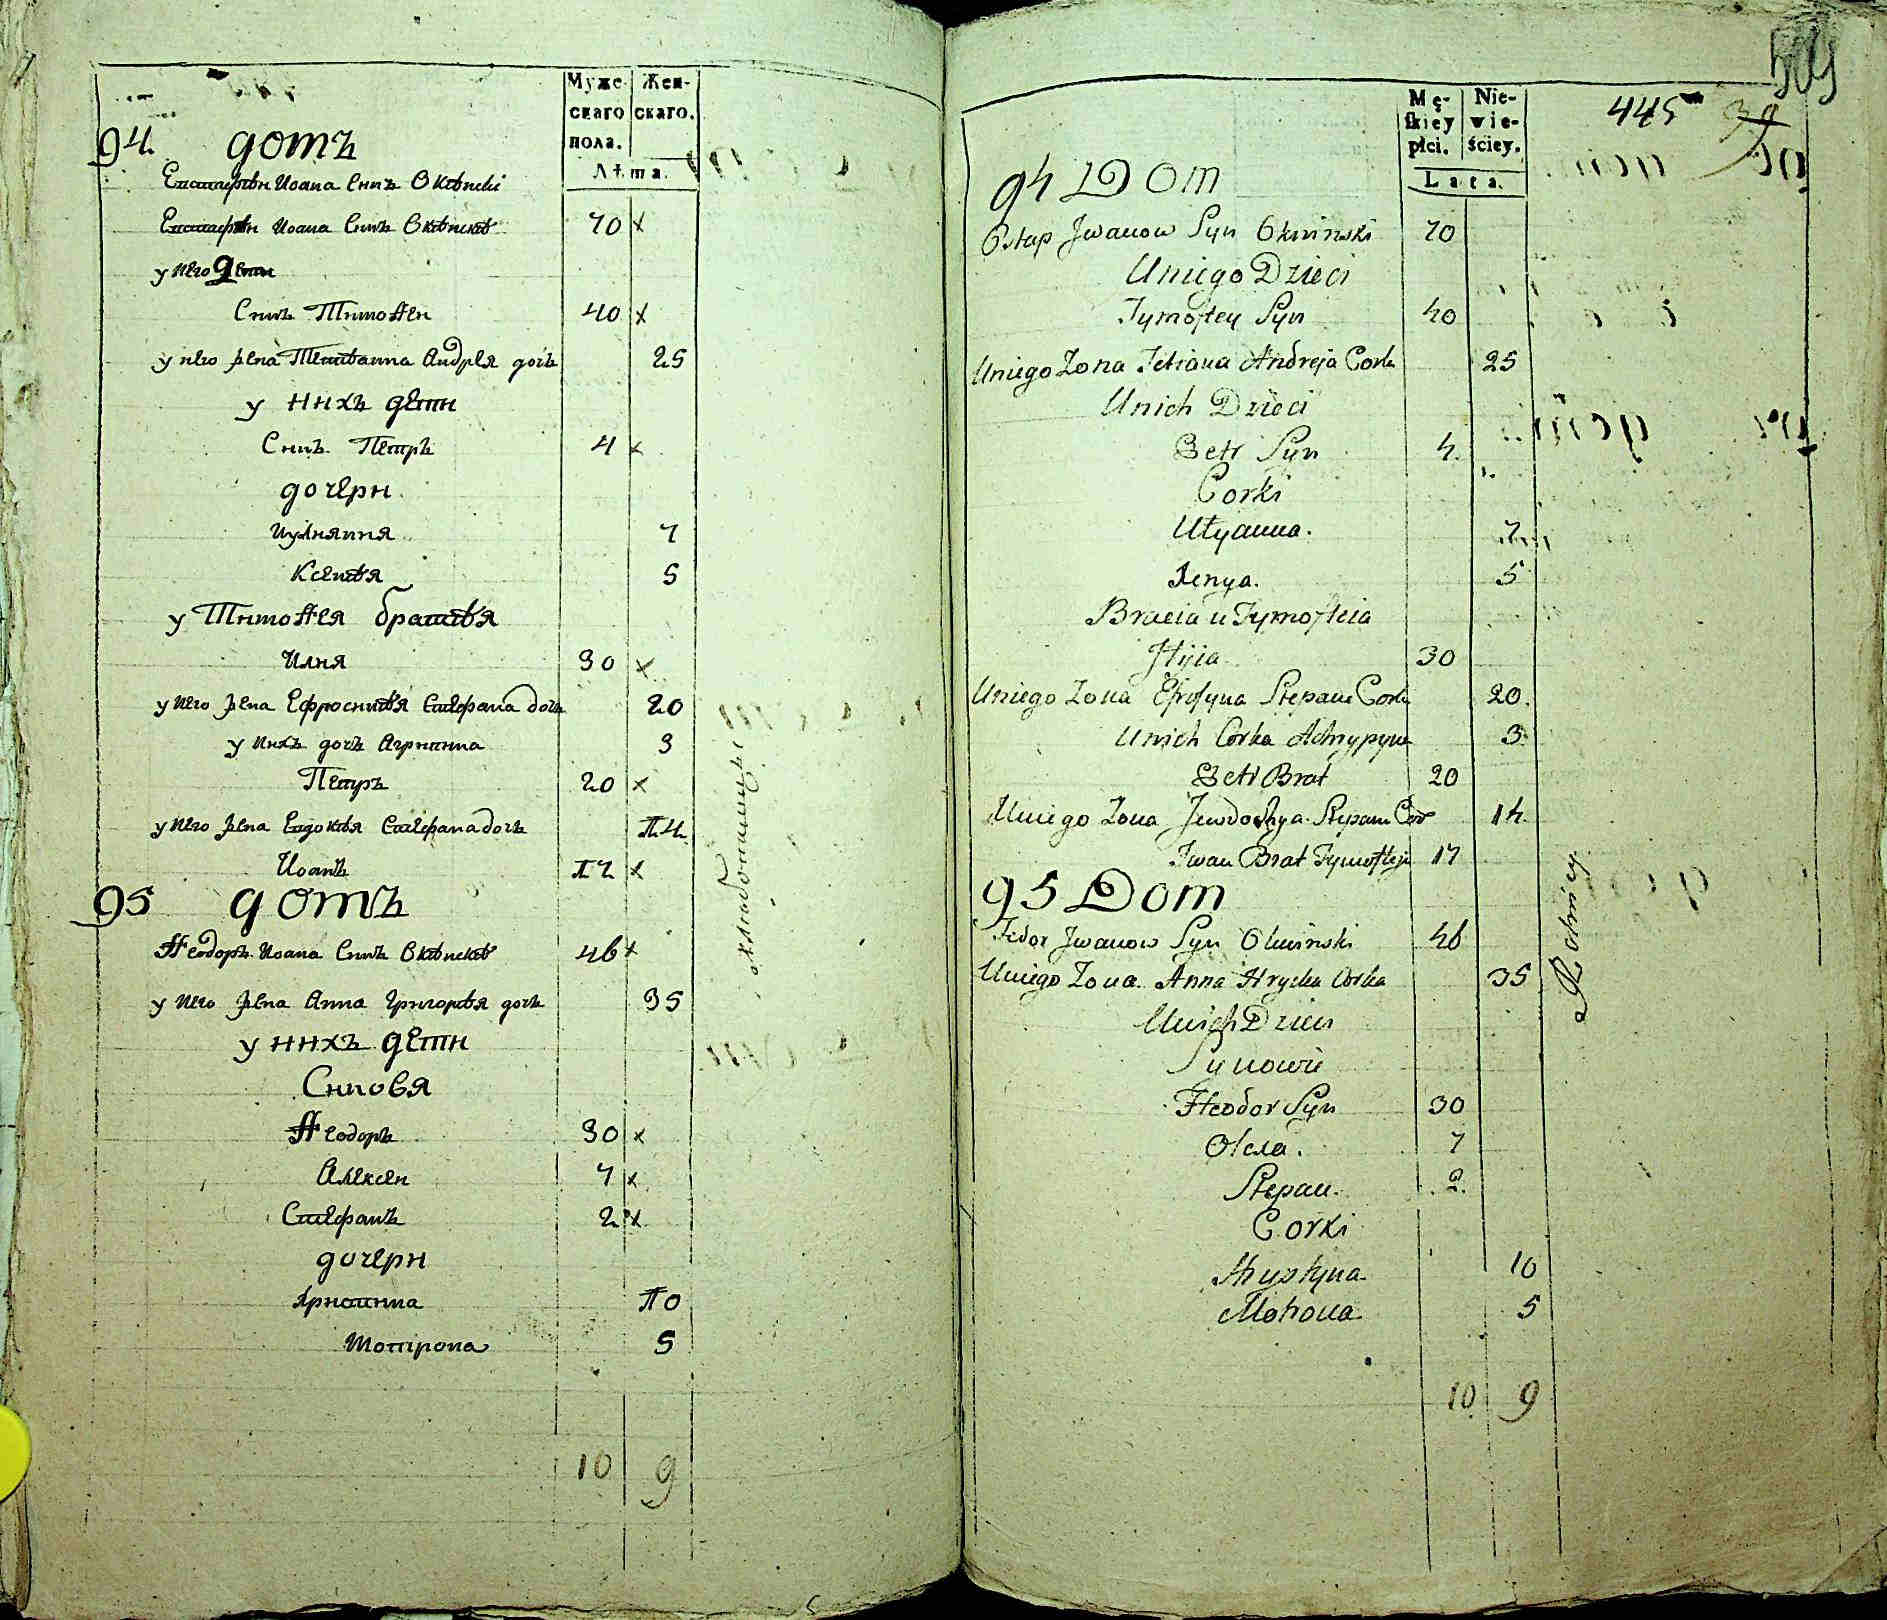 Муже-
скаго
пола.
Жен-
скаго.
Лѣта.
94. домъ
Иоана Синъ
Иоана Синъ 70 x
у него дети
Синъ Тимоѳеи 40 x
у него жена Андрея дочь 25
у нихъ дети
Синъ Петръ 4 x
дочери
Иулиания 7
Ксения 5
у Тимоѳея братья
Илия 30 x
у него жена Ефросиния Стефана дочь 20
у нихъ дочь Агрипина 3
Петръ 20 x
у него жена Евдокия Стефана дочь 14
Иоанъ 17 x
95 домъ
Ѳеодоръ Иоана Синъ 46 x
у него жена Анна Григория дочь 35
у нихъ дети
Синовя
Ѳеодоръ 30 x
Алексеи 7 x
Стефанъ 2 x
дочери
Христина 10
Мотрона 5
10 9
509
445
39
Mę-
skiey
płci.
Nie-
wie-
ściey.
Lata.
94 Dom
Ostap Jwanow Syn Okninski 70
Uniego Dzieci
Tymoftey Syn 40
Uniego Zona Tetiana Andreja Corka 25
Unich Dzieci
Petr Syn 4
Corki
Ulyanna. 7
Xenya. 5
Bracia u Tymofteia
Jlija 30
Uniego Zona Efrosyna Stepana Corka 20.
Unich Corka 3
Petr Brat 20
Uniego Zona Jewdochya Stepana Cor 14
Jwan Brat Tymofteja 17
95 Dom
Fedor Jwanow Syn Okninski 46
Uniego Zona Anna Hrycka Corka 35
Unich Dzieci
Synowie
Fteodor Syn 30
Olexa. 7
Stepan. 2.
Corki
Hrystyna 10
Motrona 5
10 9
Rolnicy